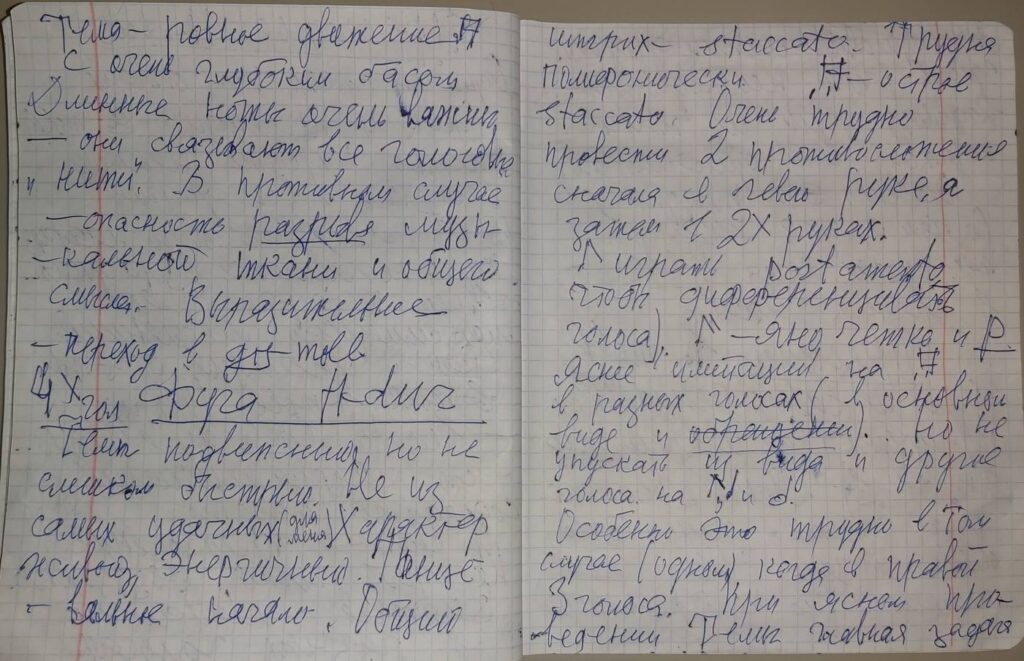 Тема – ровное движение ♫
с очень глубоким басом
Длинные ноты очень важны
– они связывают все голоса в
"нити". В противном случае
– опасность разрыва музы
– кальной ткани и общего
смысла. Выразительные
– переход в
4х гол Фуга
Темп подвижный, но не
слишком быстрый. Не из
самых удачных (для меня) Характер
живой, энергичный. Танце
– вальные начало. Общий
штрих – staccato. Трудна
полифонически. ♫ – острые
staccato. Очень трудно
провести 2 противосложения
сначала в левой руке, а
затем в 2х руках.
играть portamento
чтобы дифференцировать
голоса). – ясно четко и р.
Ясные имитации на ♫
в разных голосах (в основном
виде и обращении). Но не
упускать из вида и другие
голоса на
Особенно это трудно в том
случае (одном) когда в правой
3 голоса. При ясном про
– ведении Темы главная задача